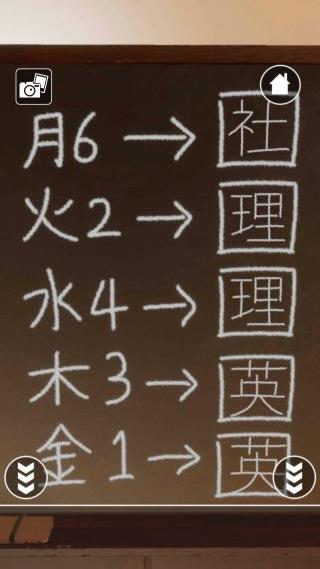 月6 → 社
火2 → 理
水4 → 理
木3 → 英
金1 → 英